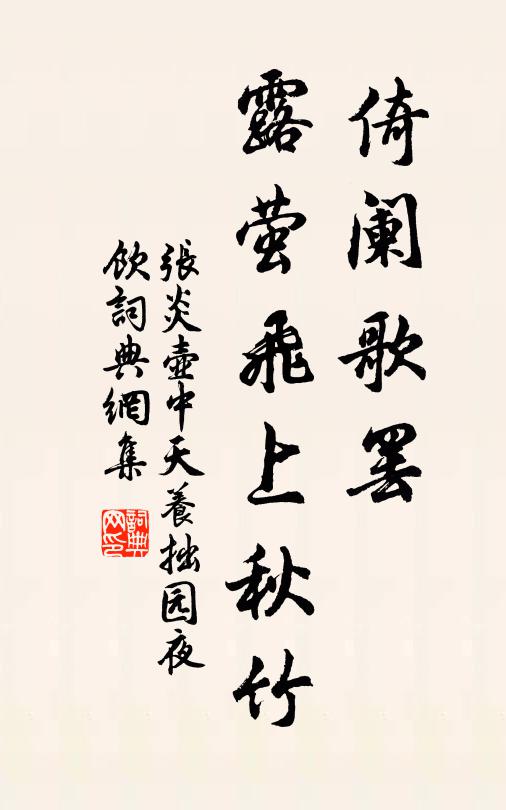 倚阑歌罢
露萤飛上秋竹
張炎壺中天養拙园夜
飲詞典網集
詞典
网印